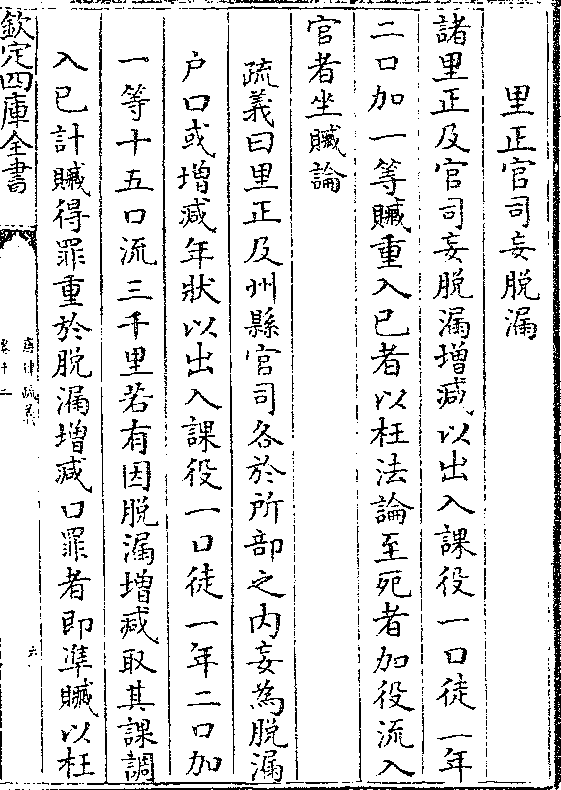 里正官司妄脱漏
諸里正及官司妄脱漏增减以出入課役一口徒一年
二口加一等贓重入已者以枉法論至死者加役流入
官者坐贓論
疏義曰里正及州縣官司各於所部之内妄為脱漏
户口或增减年狀以出入課役一口徒一年二口加
一等十五口流三千里若有因脱漏增减取其課調
入已計贓得罪重於脱漏增减口罪者即凖贓以枉
欽定四庫全書
唐律疏義
卷十二
六